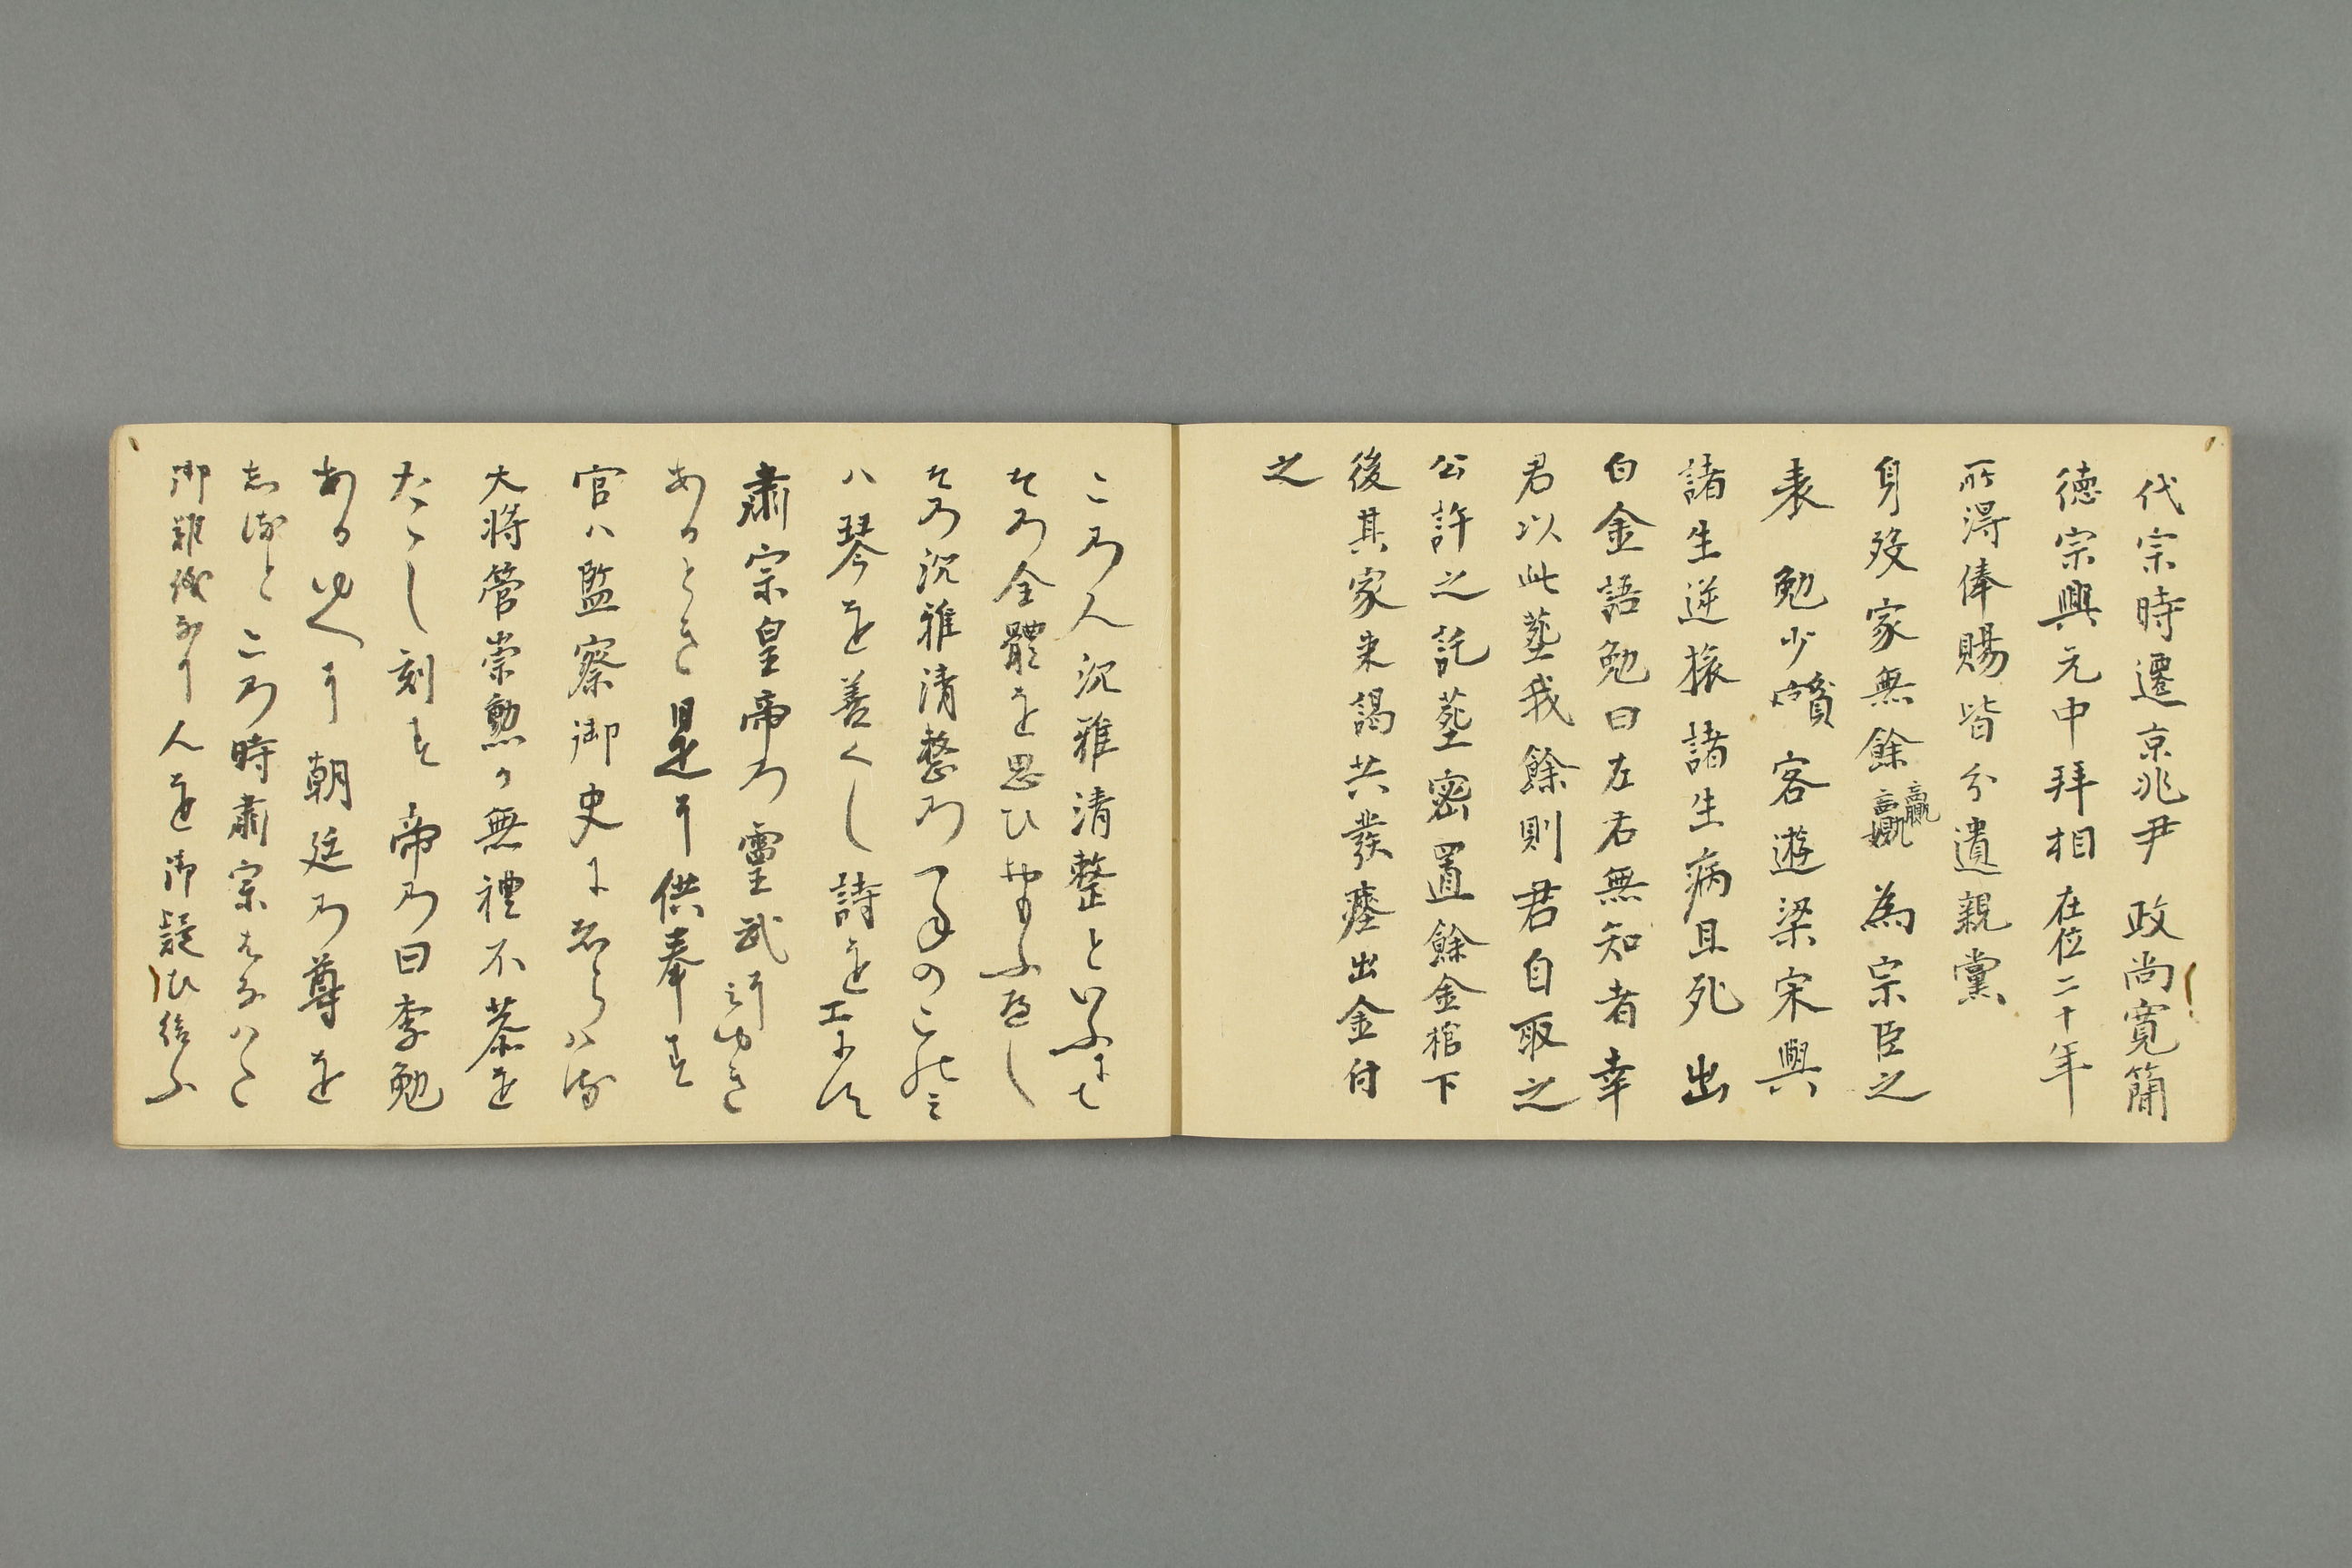 代宗時遷京兆尹 政尚寛簡
德宗興元中拜相 在位二十年
所得俸賜皆分遺親黨
身歿家無餘贏 為宗臣之
表 勉少貧 客遊梁宋與
諸生逆旅諸生病且死 出
白金語勉曰左右無知者幸
君以此塟我餘則君自取之
公許之訖塟密置餘金棺下
後其家来謁共發塟出金付
之
この人沉雅清整といふにて
その全體を思ひやるへし
その沉雅清整の
ハ琴を善くし詩を工
肅宗皇帝の靈武に行ゆき
あるとき是に供奉す
官ハ監察御史
大将管崇勲か無禮不恭を
たゝし刻す 帝の曰李勉
ありて朝廷の尊を
しると この時肅宗
人を御疑ひ給ふ